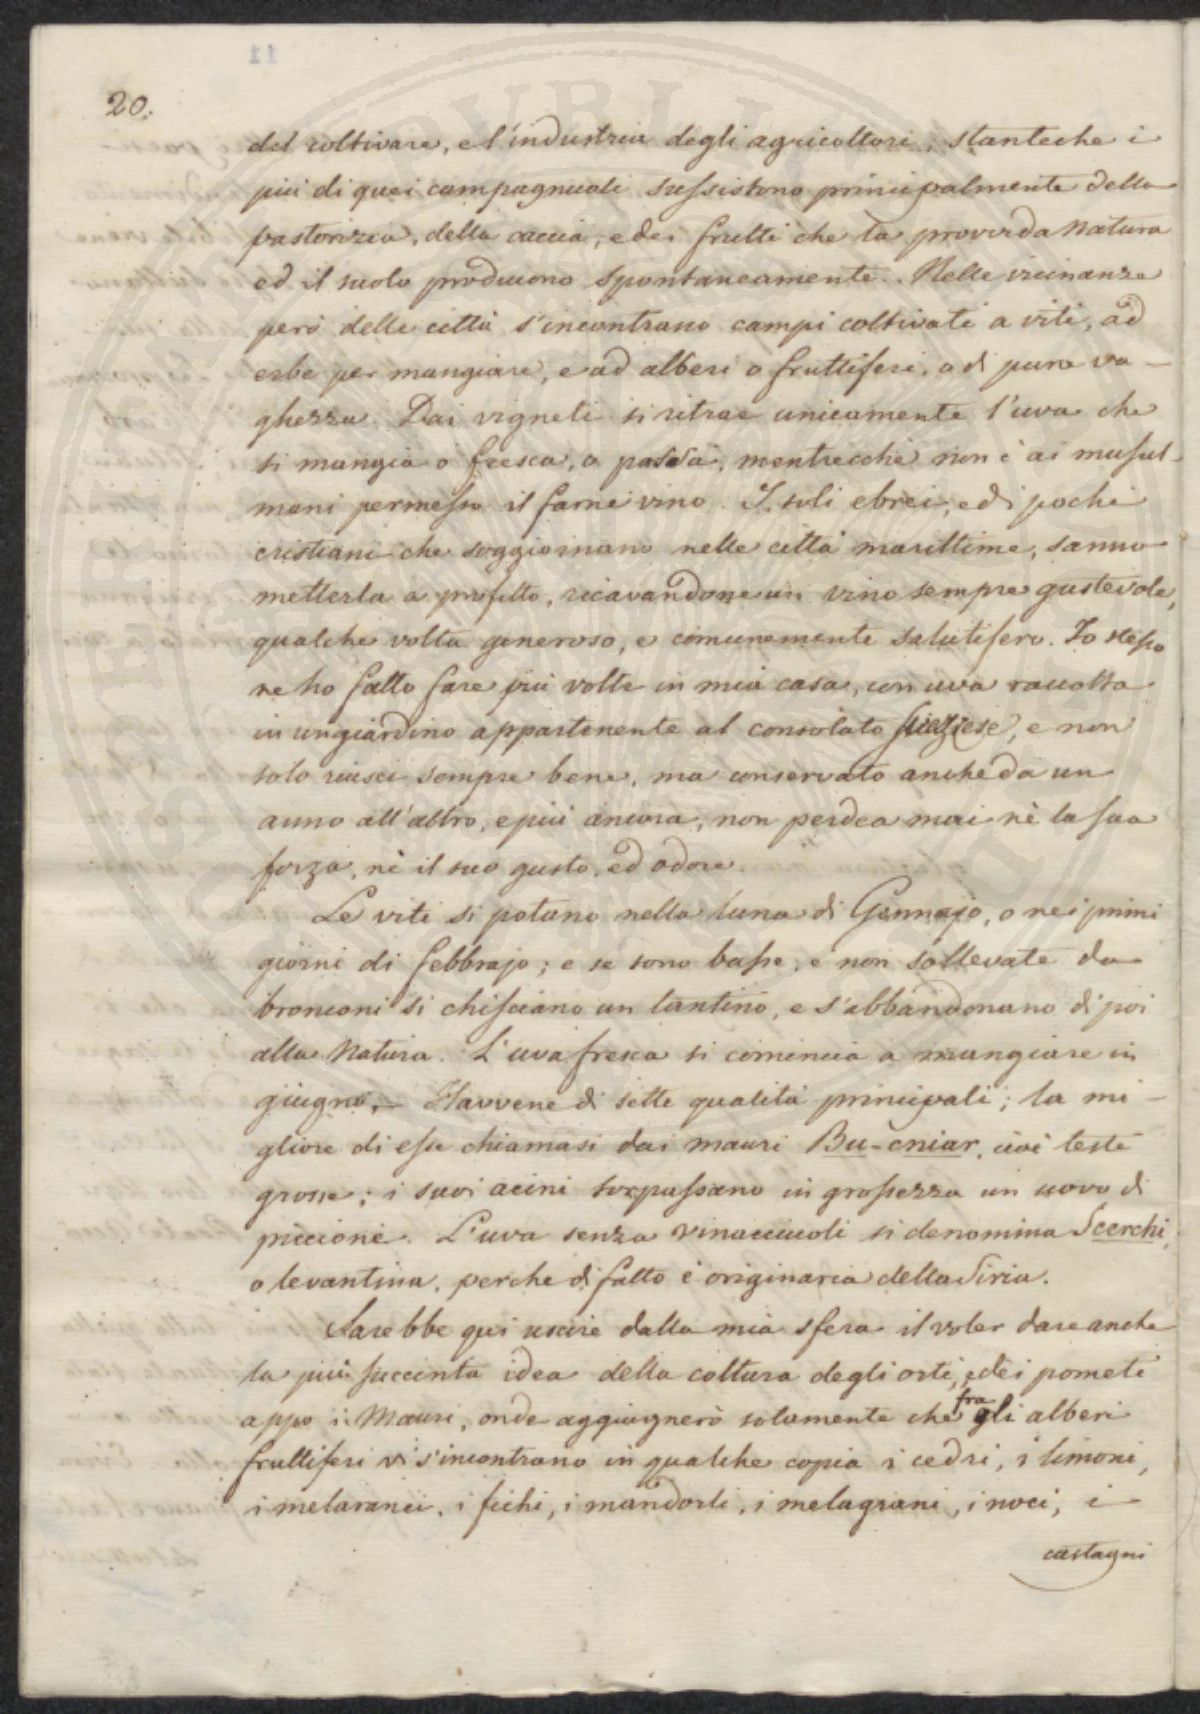 20.
del coltivare, e l'industria degli agricoltori, stanteche i
più di quei campagnuoli sussistono principalmente della
pastorizia, della caccia, e dei frutti che la provvida Natura
ed il suolo producono spontaneamente. Nelle vicinanze
però delle città s'incontrano campi coltivati a viti, ad
erbe per mangiare, e ad alberi o fruttiferi, o di pura va-
ghezza. Dai vigneti si ritrae unicamente l'uva che
si mangia o fresca, o passa, mentrecchè non è ai musul-
mani permesso il farne vino. I soli ebrei, ed i pochi
cristiani che soggiornano nelle città marittime, sanno
metterla a profitto, ricavandone un vino sempre gustevole,
qualche volta generoso, e comunemente salutifero. Io stesso
ne ho fatto fare più volte in mia casa, con uva raccolta
in un giardino appartenente al consolato svezzese, e non
solo riuscì sempre bene, ma conservato anche da un
anno all'altro, e più ancora, non perdea mai nè la sua
forza, nè il suo gusto, ed odore.
Le viti si potano nella luna di Gennajo, o nei primi
giorni di febbrajo; e se sono basse, e non sollevate da
bronconi si chisciano un tantino, e s'abbandonano di poi
alla Natura. L'uva fresca si comincia a mangiare in
giugno. - Havvene di sette qualità principali; la mi-
gliore di esse chiamasi dai mauri Bu-cniar, cioè teste
grosse; i suoi acini sorpassano in grossezza un uovo di
piccione. L'uva senza vinacciuoli si denomina Scerchi,
o levantina, perche di fatto è originaria della Siria.
Sarebbe qui uscire dalla mia sfera il voler dare anche
la più succinta idea della coltura degli orti, e dei pometi
appo i Mauri, onde aggiugnerò solamente che fra gli alberi
fruttiferi vi s'incontrano in qualche copia i cedri, i limoni,
i melaranci, i fichi, i mandorli, i melagrani, i noci, i
castagni